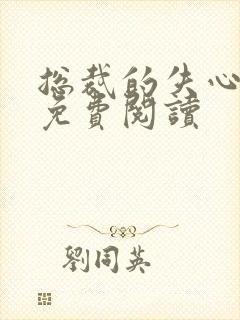 总裁的失心
免費閱讀
劉同英